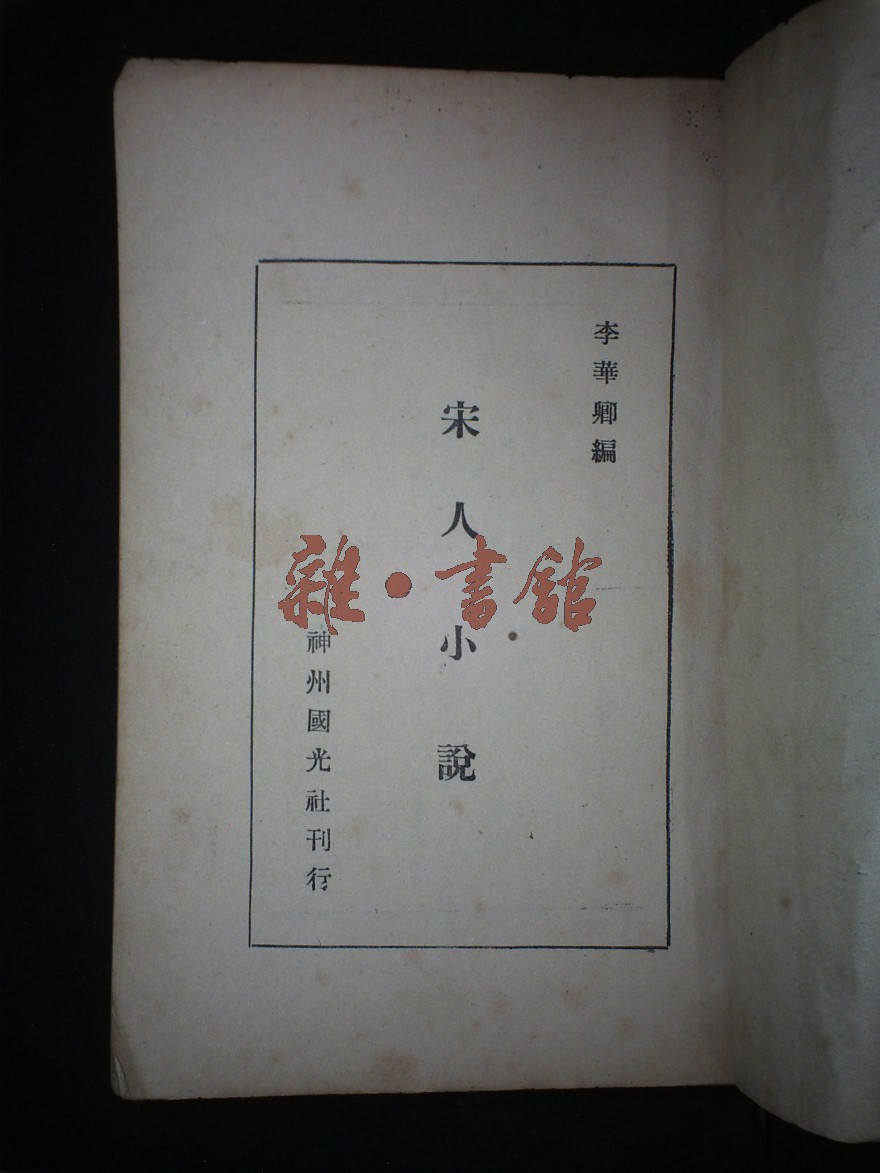 李華卿編
宋人小說
神州國光社刊行
雜·書館